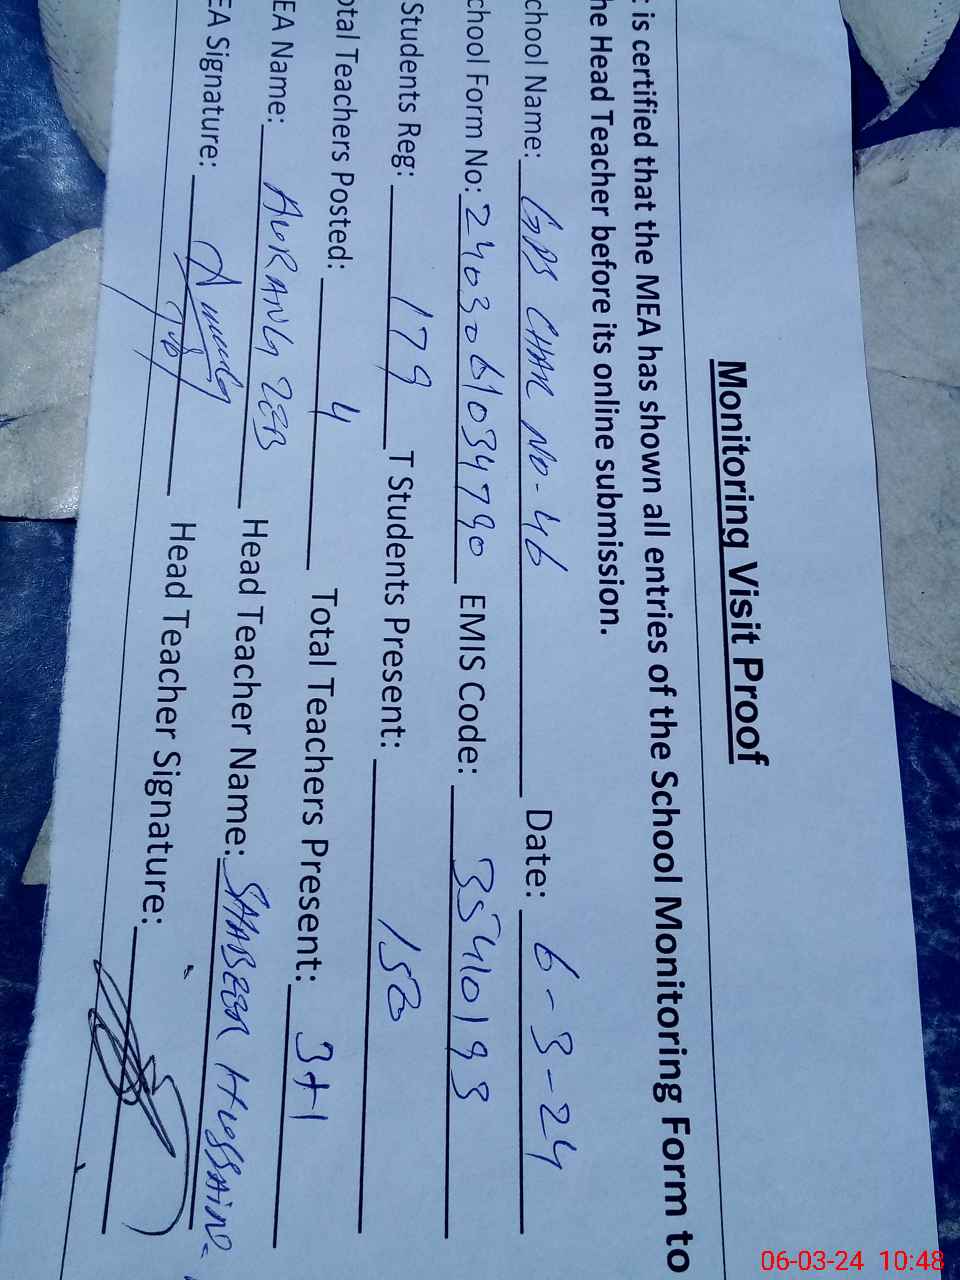 Monitoring Visit Proof
t is certified that the MEA has shown all entries of the School Monitoring Form to
he Head Teacher before its online submission.
chool Name: GPS CHAK NO-46 Date: 6-3-24
chool Form No: 2403061034790 EMIS Code: 35410193
Students Reg: 179 T Students Present: 150
otal Teachers Posted: 4 Total Teachers Present: 3+1
EA Name: AURANG ZEB Head Teacher Name: SHABEER HUSSAIN
EA Signature: Head Teacher Signature:
06-03-24 10:48